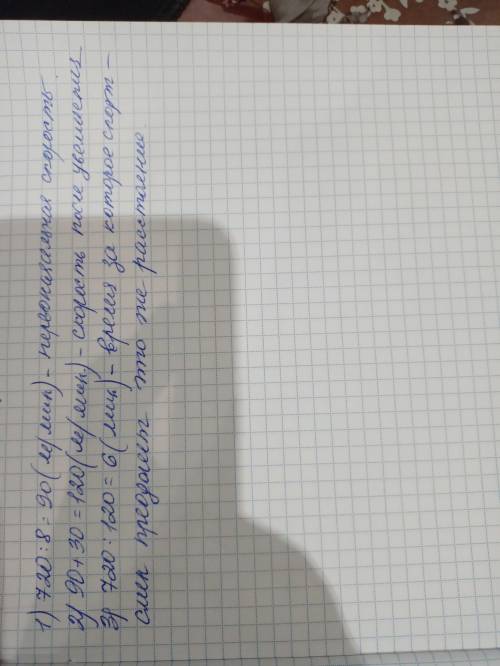 1) 720:8=90(м/мин) - первоначальная скорость
2) 90+30=120(м/мин) - скорость после увеличения
3) 720:120=6(мин) - время за которое спорт-
смен преодолеет то же расстояние